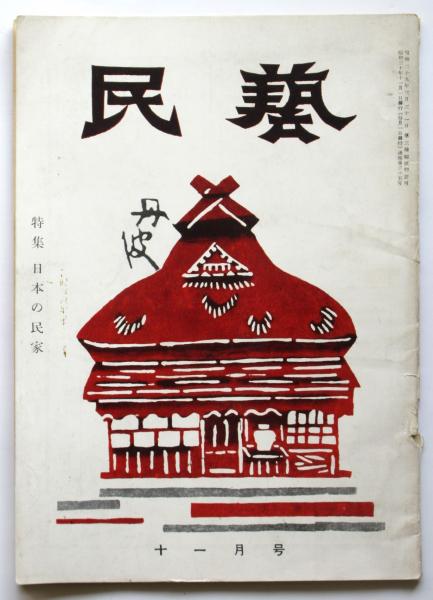 民藝
丹波
特集 日本の民家
十一月号